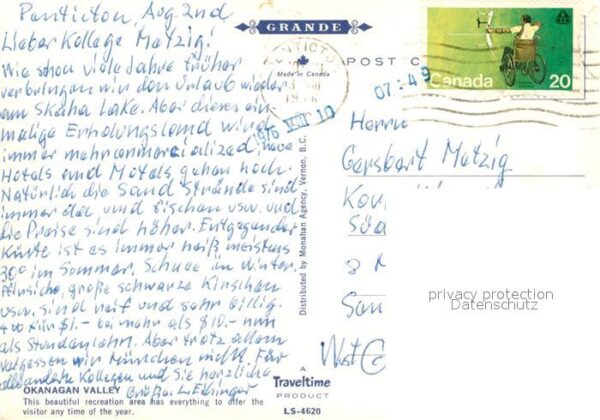 Penticton, Aug. 2nd
Lieber Kollege Matzig!
Wie schon viele Jahre früher
verbringen wir den Urlaub wieder
am Skaha Lake. Aber dieses ein-
malige Erholungsland wird
immer mehr commercialized, neue
Hotels und Motels gehen hoch.
Natürlich die Sand Strände sind
immer da und fischen usw. und
die Preise sind höher. Entgegen der
Küste ist es immer heiß meistens
30° im Sommer. Schnee im Winter.
Pfirsiche, große schwarze Kirschen
usw. sind reif und sehr billig.
für $1.- bei mehr als $10.- nun
als Stundenlohn. Aber trotz allem
vergessen wir München nicht. Für
alle andere Kollegen und Sie herzliche
Grüße L. Elsinger
OKANAGAN VALLEY
This beautiful recreation area has everything to offer the
visitor any time of the year.
GRANDE
Made in Canada
Distributed by Monahan Agency, Vernon, B.C.
A
Traveltime
PRODUCT
LS-4620
POST C
PENTICTON
1976 VIII 10
07:49
Canada 20
Herrn
Gersbart Matzig
8
West
privacy protection
Datenschutz